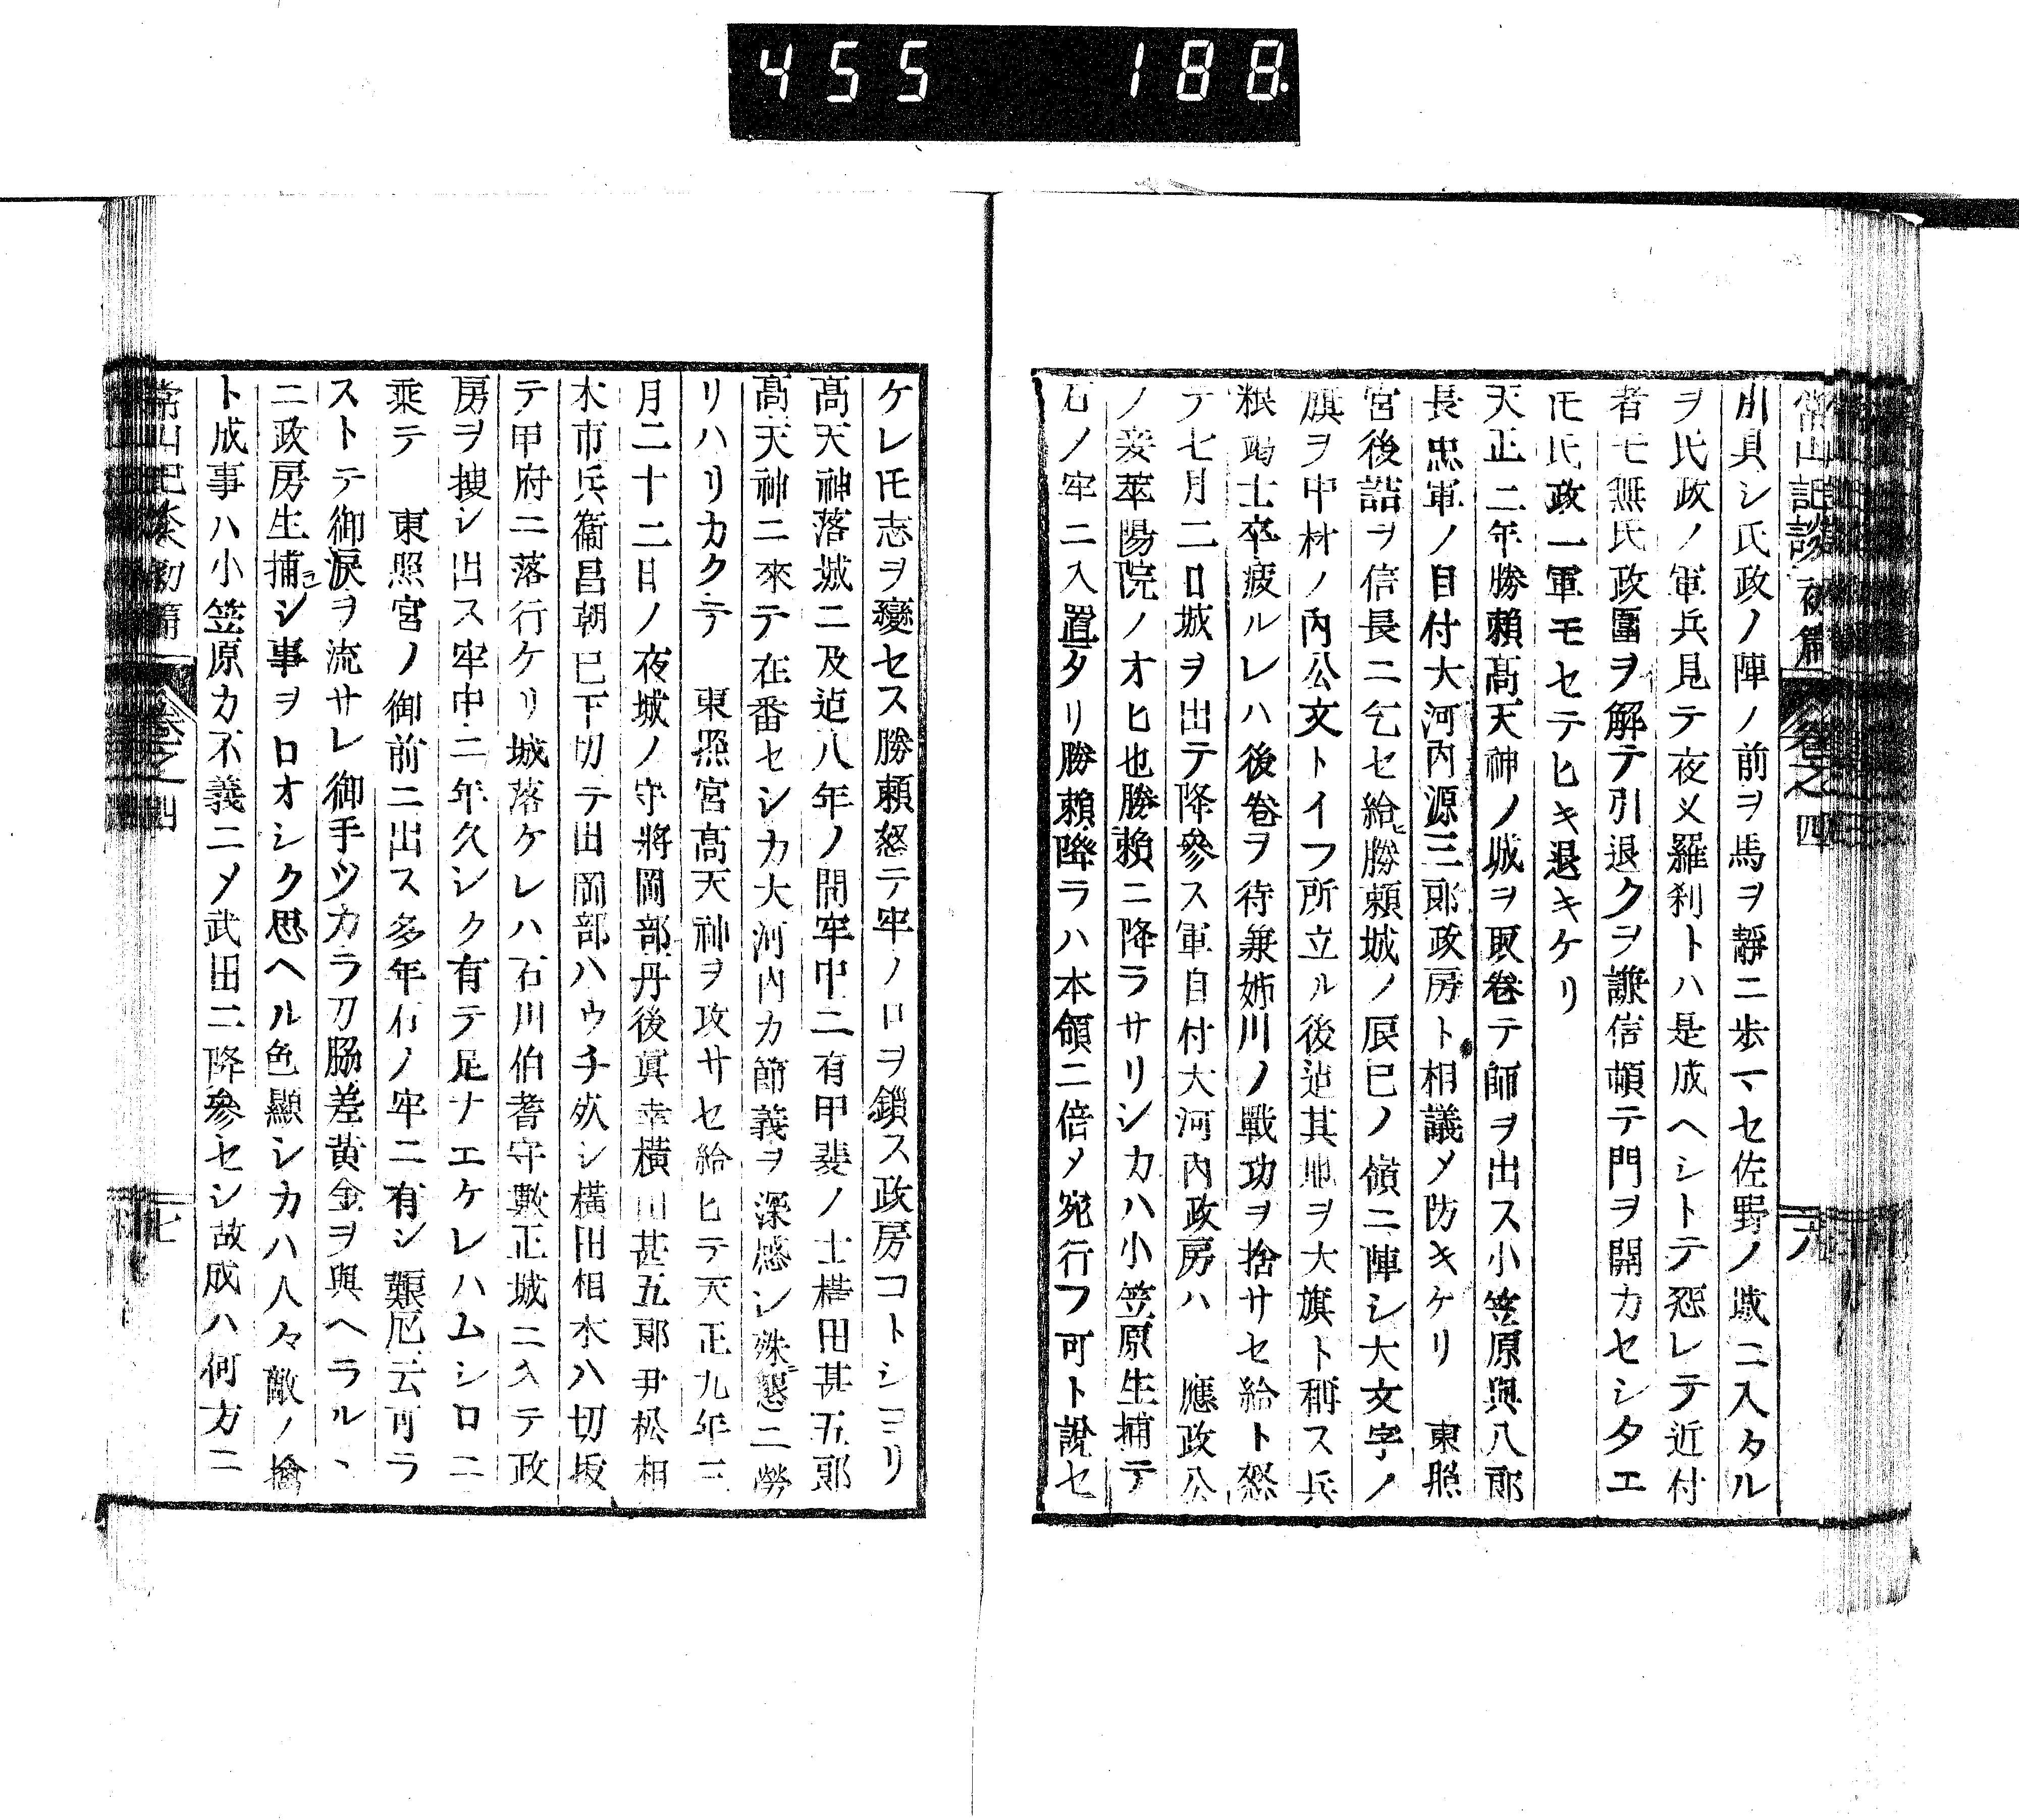 455 188
常山記談初篇 卷之四 六
則具シ氏政ノ陣ノ前ヲ馬ヲ靜ニ歩マセ佐野ノ城ニ入タル
ヲ氏政ノ軍兵見テ夜叉羅刹トハ是成ヘシトテ恐レテ近付
者モ無氏政圍ヲ解テ引退クヲ謙信頓テ門ヲ開カセシタエ
𪜈氏政一軍モセテヒキ退キケリ
天正二年勝頼髙天神ノ城ヲ取卷テ師ヲ出ス小笠原與八郎
長忠軍ノ目付大河内源三郎政房ト相議〆防キケリ 東照
宮後詰ヲ信長ニ乞セ給ヒ勝頼城ノ辰巳ノ嶺ニ陣シ大文字ノ
旗ヲ中村ノ内公文トイフ所立ル後迠其地ヲ大旗ト稱ス兵
粮竭士卒疲ルレハ後卷ヲ待兼姉川ノ戰功ヲ捨サセ給ト怒
テ七月二日城ヲ出テ降參ス軍目付大河内政房ハ 應政公
ノ妾華陽院ノオヒ也勝頼ニ降ラサリシカハ小笠原生捕テ
石ノ牢ニ入置タリ勝頼降ラハ本領ニ倍〆宛行フ可ト說セ
ケレ𪜈志ヲ變セス勝頼怒テ牢ノ口ヲ鎖ス政房コトシヨリ
髙天神落城ニ及迠八年ノ間牢中ニ有甲斐ノ士橫田甚五郎
髙天神ニ來テ在番セシカ大河内カ節義ヲ深感シ殊ニ懇ニ勞
リハリカクテ 東照宮髙天神ヲ攻サセ給ヒテ天正九年三
月二十二日ノ夜城ノ守將岡部丹後眞幸橫田甚五郎尹松相
木市兵衞昌朝已下切テ出岡部ハウチ死シ橫田相木ハ切拔
テ甲府ニ落行ケリ城落ケレハ石川伯耆守數正城ニ入テ政
房ヲ搜シ出ス牢中ニ年久シク有テ足ナエケレハムシロニ
乘テ 東照宮ノ御前ニ出ス多年石ノ牢ニ有シ艱厄云可ラ
ストテ御淚ヲ流サレ御手ツカラ刀脇差黄金ヲ與ヘラル丶
ニ政房生捕ラシ事ヲ口オシク思ヘル色顯シカハ人々敵ノ擒
ト成事ハ小笠原カ不義ニ〆武田ニ降參セシ故成ハ何方ニ
常山記談初篇 卷之四 七